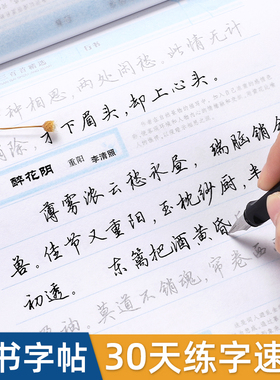 一种相思，两处闲愁。此情无计
才下眉头，却上心头。
醉花阴 重阳 李清照
薄雾浓云愁永昼，瑞脑销
兽。佳节又重阳，玉枕纱厨，半
初透。 东篱把酒黄昏
莫道不销魂，帘卷西
书字帖 30天练字速